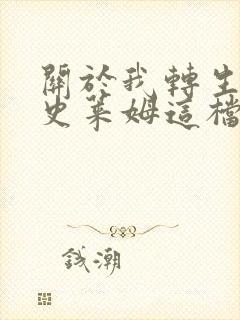 關於我轉生
史萊姆這檔
錢潮